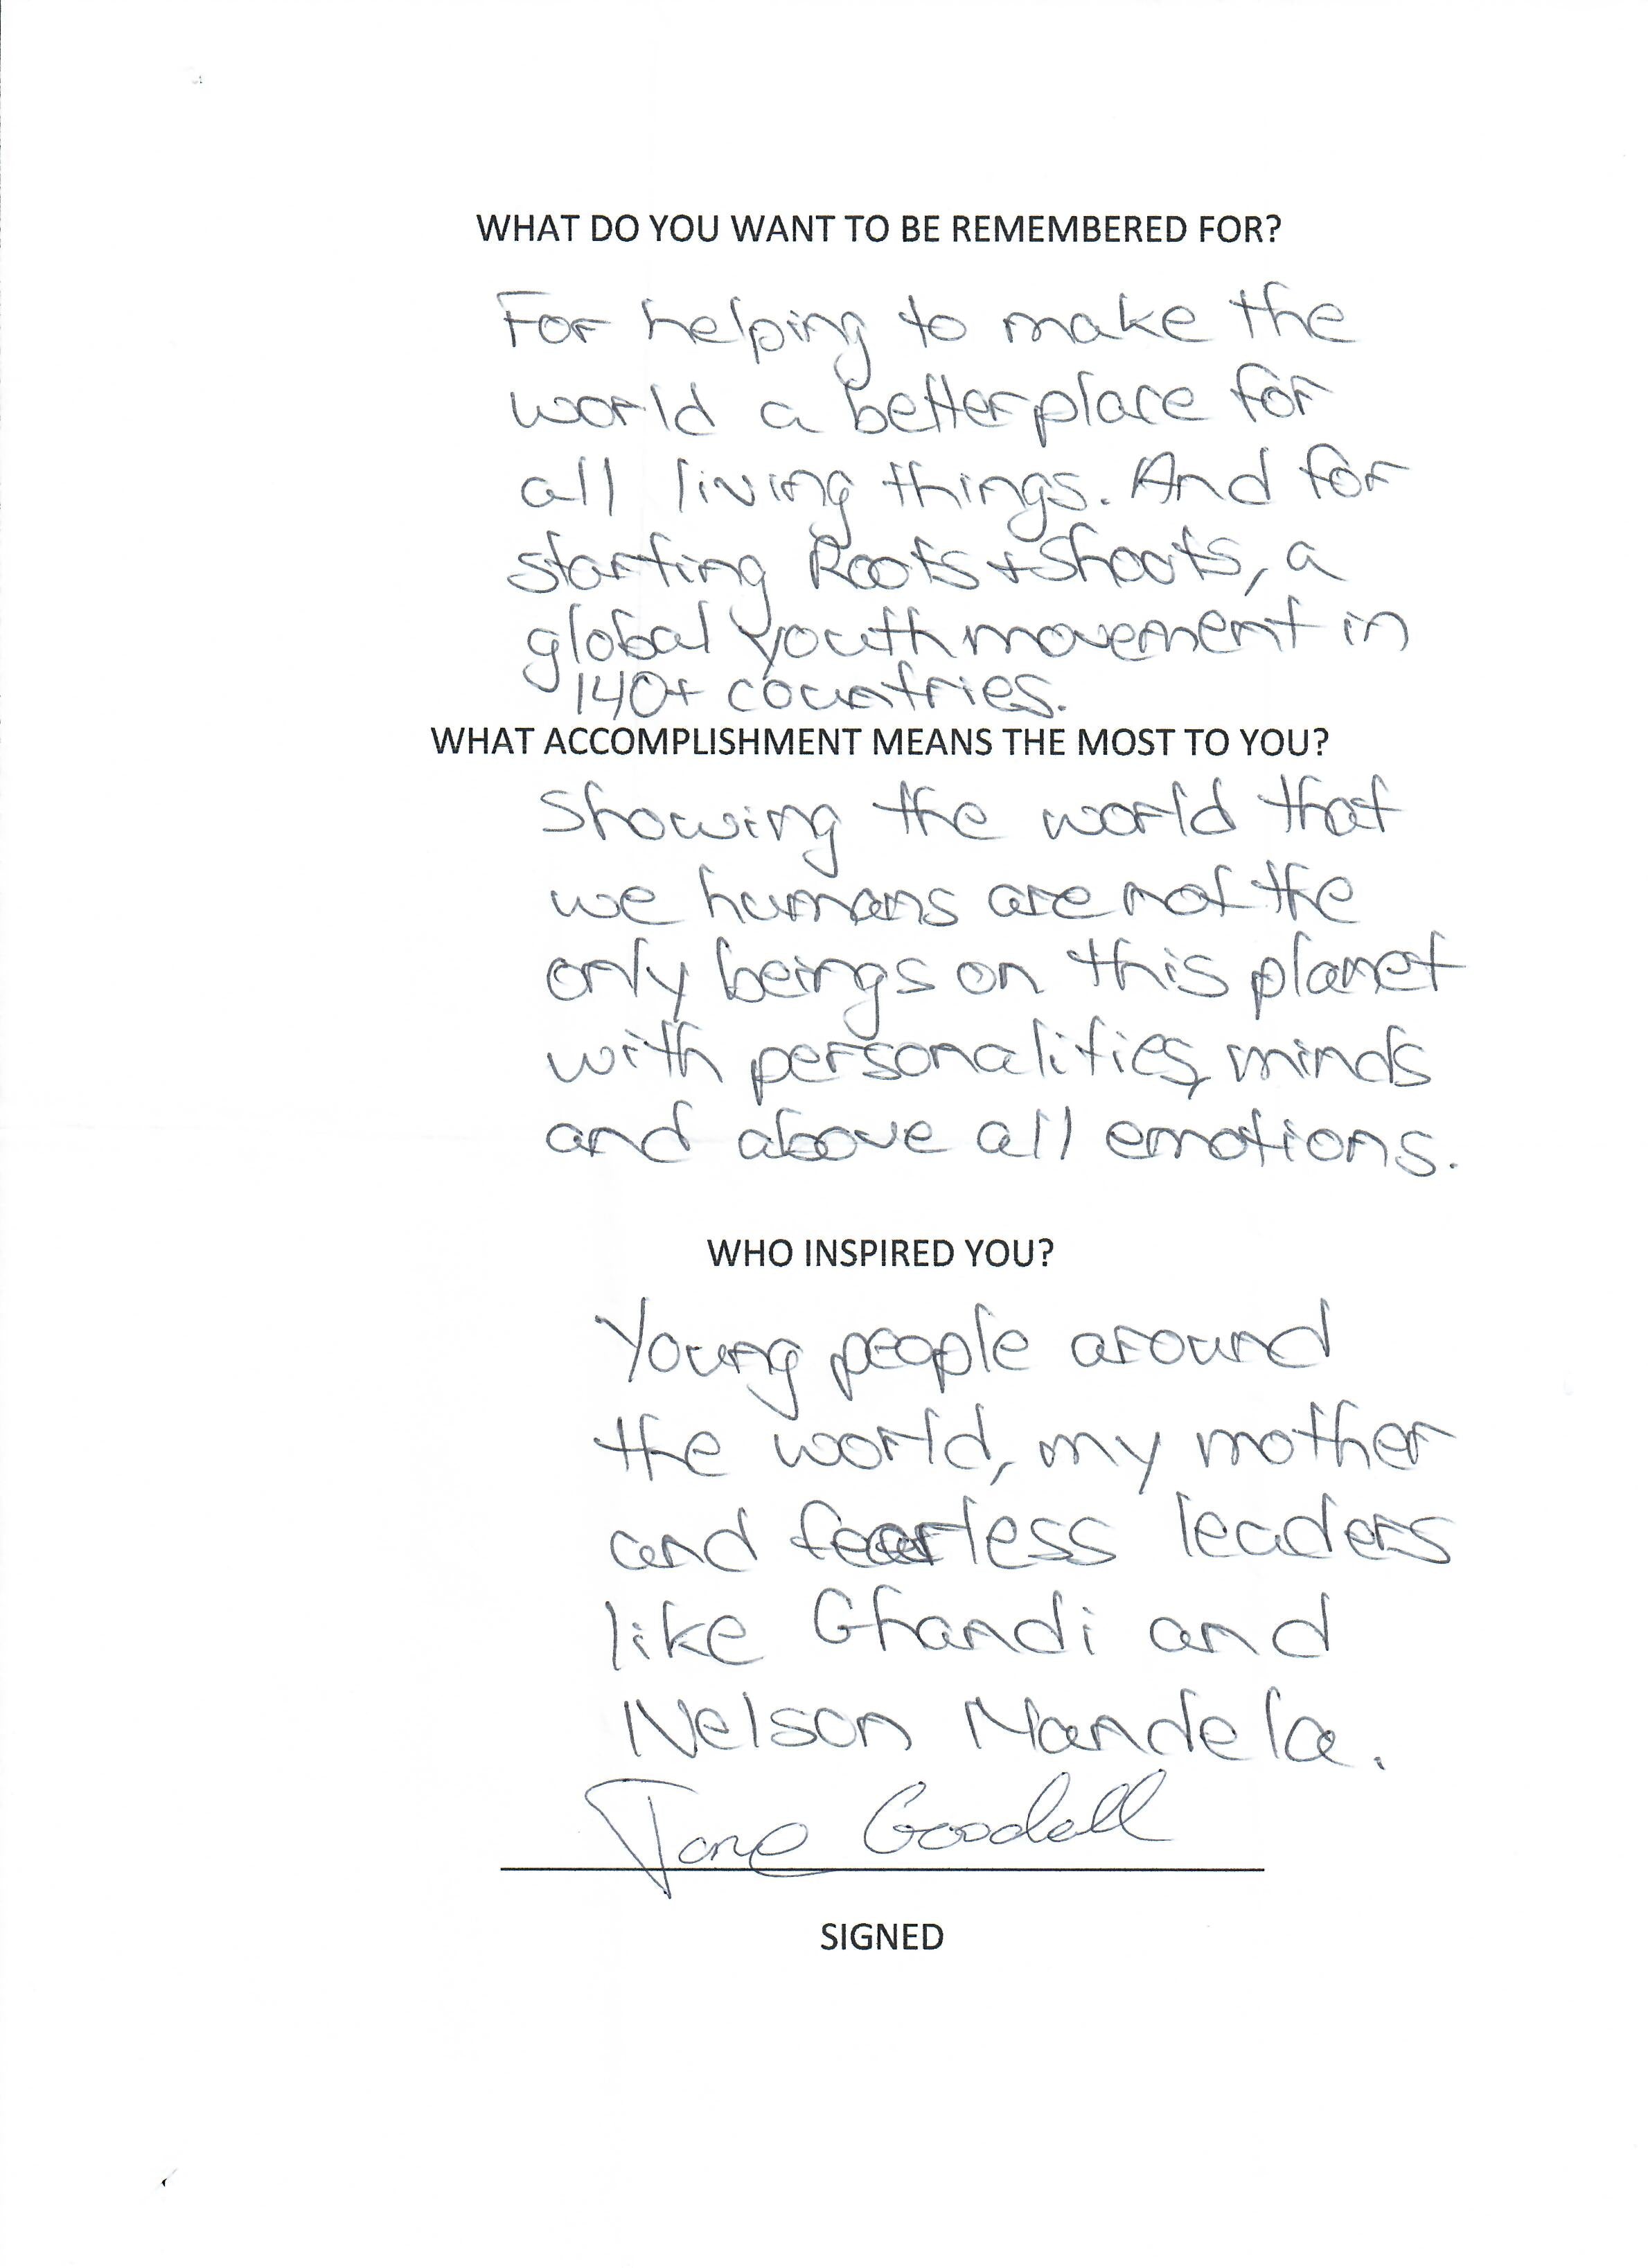 WHAT DO YOU WANT TO BE REMEMBERED FOR?
For helping to make the
world a better place for
all living things. And for
starting Roots + Shoots, a
global youth movement in
140+ countries.
WHAT ACCOMPLISHMENT MEANS THE MOST TO YOU?
Showing the world that
we humans are not the
only beings on this planet
with personalities, minds
and above all emotions.
WHO INSPIRED YOU?
Young people around
the world, my mother
and fearless leaders
like Ghandi and
Nelson Mandela.
Jane Goodall
SIGNED